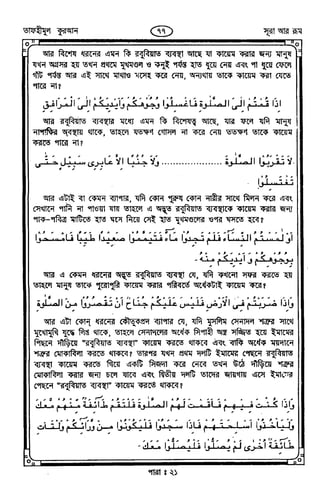 তাফহীমুল কুরআন
৭৭
সূরা আর রূম
আর বিশেষ ধরনের এমন কি রবুবিয়াত ব্যবস্থা আছে যা কায়েম করার জন্য মানুষ
যখন অগ্রসর হয় তখন প্রথমে মুখমণ্ডল ও কনুই পর্যন্ত হাত ধুয়ে নেয় এবং পা ধুয়ে ফেলে
গাঁট পর্যন্ত আর এই সাথে মাথাও মসেহ করে নেয়, অন্যথায় তাকে কায়েম করা যেতে
পারে না?
اِذَا قُمْتُمْ اِلَى الصَّلٰوةِ فَاغْسِلُوْا وُجُوْهَكُمْ وَاَيْدِيَكُمْ اِلَى الْمَرَافِقِ
আর রবুবিয়াত ব্যবস্থার মধ্যে এমন কি বিশেষত্ব আছে, যার ফলে যদি মানুষ
নাপাকির অবস্থায় থাকে, তাহলে যতক্ষণ গোসল না করে নেয় ততক্ষণ তাকে কায়েম
করতে পারে না?
لَا تَقْرَبُوا الصَّلٰوةَ .................. وَلَا جُنُبًا اِلَّا عَابِرِىْ سَبِيْلٍ حَتّٰى
تَغْتَسِلُوْا
আর এটাই বা কেমন ব্যাপার, যদি কোন পুরুষ কোন নারীর সাথে মিলন করে এবং
সেখানে পানি না পাওয়া যায় তাহলে এ অদ্ভুত রবুবিয়াত ব্যবস্থাকে কায়েম করার জন্য
পাক-পবিত্র মাটিতে হাত ঘসে নিয়ে সেই হাত মুখমণ্ডলের ওপর ঘসতে হবে?
اَوْ لٰمَسْتُمُ النِّسَآءَ فَلَمْ تَجِدُوْا مَآءً فَتَيَمَّمُوْا صَعِيْدًا طَيِّبًا فَامْسَحُوْا
بِوُجُوْهِكُمْ وَاَيْدِيْكُمْ مِنْهُ
আর এ কেমন ধরনের অদ্ভুত রবুবিয়াত ব্যবস্থা যে, যদি কখনো সফর করতে হয়
তাহলে মানুষ তাকে পুরোপুরি কায়েম করার পরিবর্তে অর্ধেকটাই কায়েম করে?
وَاِذَا ضَرَبْتُمْ فِى الْاَرْضِ فَلَيْسَ عَلَيْكُمْ جُنَاحٌ اَنْ تَقْصُرُوْا مِنَ الصَّلٰوةِ
আর এটা কোন্ ধরনের কৌতুকপ্রদ ব্যাপার যে, যদি মুসলিম সেনাদল শত্রুর সাথে
মুখোমুখি যুদ্ধে লিপ্ত থাকে, তাহলে সেনাদলের অর্ধেক সিপাহী অস্ত্র সজ্জিত হয়ে ইমামের
পিছনে দাঁড়িয়ে "রবুবিয়াত ব্যবস্থা" কায়েম করতে থাকবে এবং বাকি অর্ধেক ময়দানে
শত্রুর মোকাবিলা করতে থাকবে? তারপর যখন প্রথম দলটি ইমামের পেছনে রবুবিয়াত
ব্যবস্থা কায়েম করতে গিয়ে একটি সিজদা করে নেবে তখন উঠে দাঁড়িয়ে শত্রুর
মোকাবিলা করার জন্য চলে যাবে এবং দ্বিতীয় দলটি তাদের জায়গায় এসে ইমামের
পেছনে "রবুবিয়াত ব্যবস্থা" কায়েম করতে থাকবে?
وَاِذَا كُنْتَ فِيْهِمْ فَاَقَمْتَ لَهُمُ الصَّلٰوةَ فَلْتَقُمْ طَآئِفَةٌ مِّنْهُمْ مَّعَكَ
وَلْيَاْخُذُوْا اَسْلِحَتَهُمْ فَاِذَا سَجَدُوْا فَلْيَكُوْنُوْا مِنْ وَّرَآئِكُمْ وَلْتَاْتِ
طَآئِفَةٌ اُخْرٰى لَمْ يُصَلُّوْا فَلْيُصَلُّوْا مَعَكَ
পারা : ২১